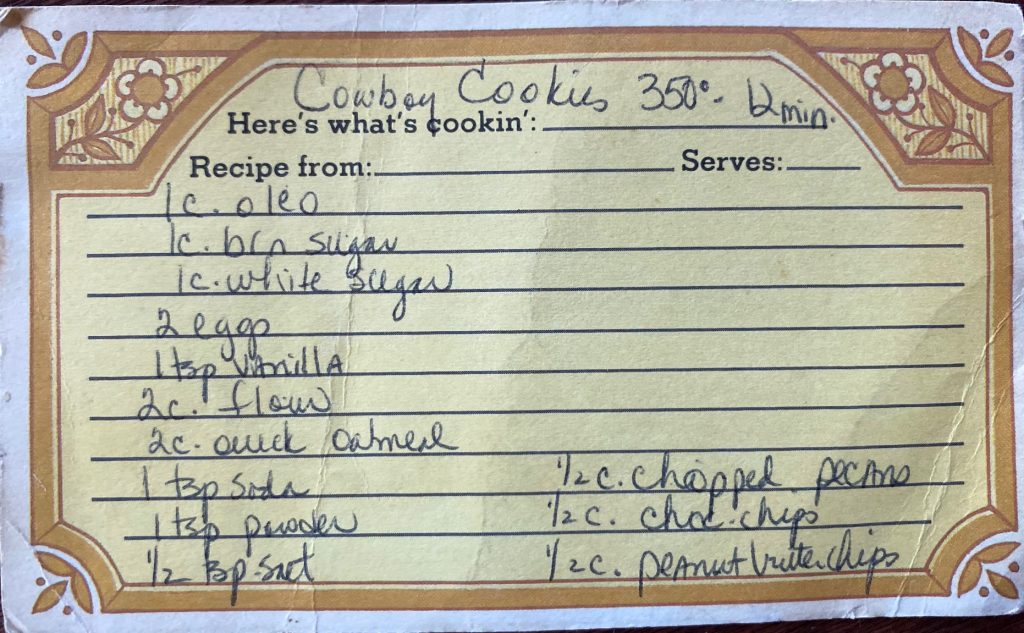 Cowboy Cookies 350°- 12 min.
Here's what's cookin':
Recipe from: Serves:
1c. oleo
1c. brn sugar
1c. white sugar
2 eggs
1 tsp vanilla
2c. flour
2c. quick oatmeal
1 tsp soda
1/2 c. chopped pecans
1 tsp powder
1/2 c. choc. chips
1/2 tsp salt
1/2 c. peanut butter chips